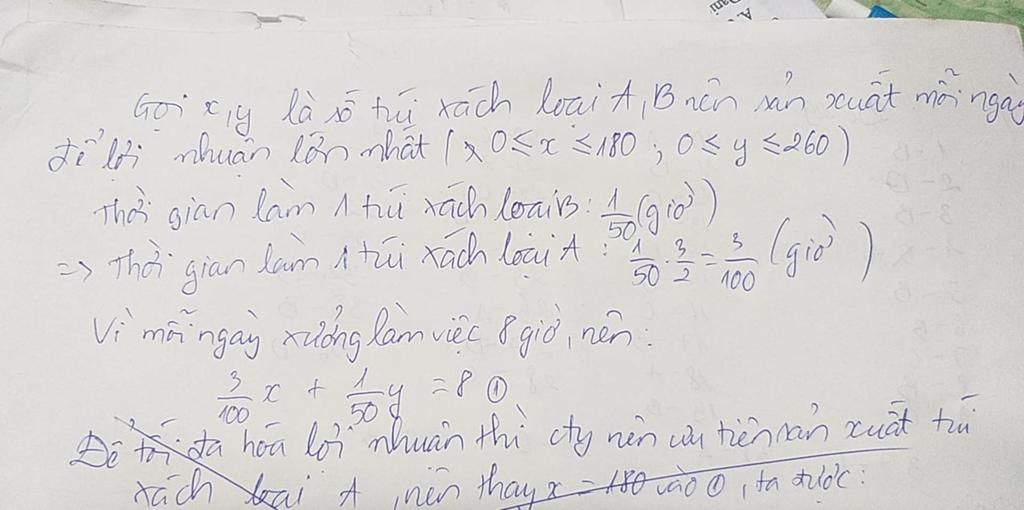 Gọi x, y là số túi xách loại A, B nên sản xuất mỗi ngày
để lợi nhuận lớn nhất ( 0 ≤ x ≤ 180 ; 0 ≤ y ≤ 260 )
Thời gian làm 1 túi xách loại B : 1/50 (giờ)
=> Thời gian làm 1 túi xách loại A : 1/50 . 3/2 = 3/100 (giờ)
Vì mỗi ngày xưởng làm việc 8 giờ, nên :
3/100 x + 1/50 y = 8 ①
Để tối đa hóa lợi nhuận thì cty nên ưu tiên sản xuất túi
xách loại A, nên thay x = 180 vào ①, ta được :